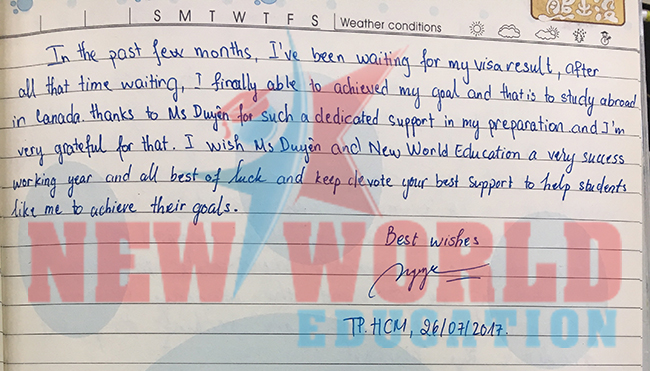 S M T W T F S Weather conditions
In the past few months, I've been waiting for my visa result, after
all that time waiting, I finally able to achieved my goal and that is to study abroad
in Canada. thanks to Ms Duyên for such a dedicated support in my preparation and I'm
very grateful for that. I wish Ms Duyên and New World Education a very sucess
working year and all best of luck and keep devote your best support to help students
like me to achieve their goals.
Best wishes
TP.HCM, 26/07/2017.
NEW WORLD
EDUCATION